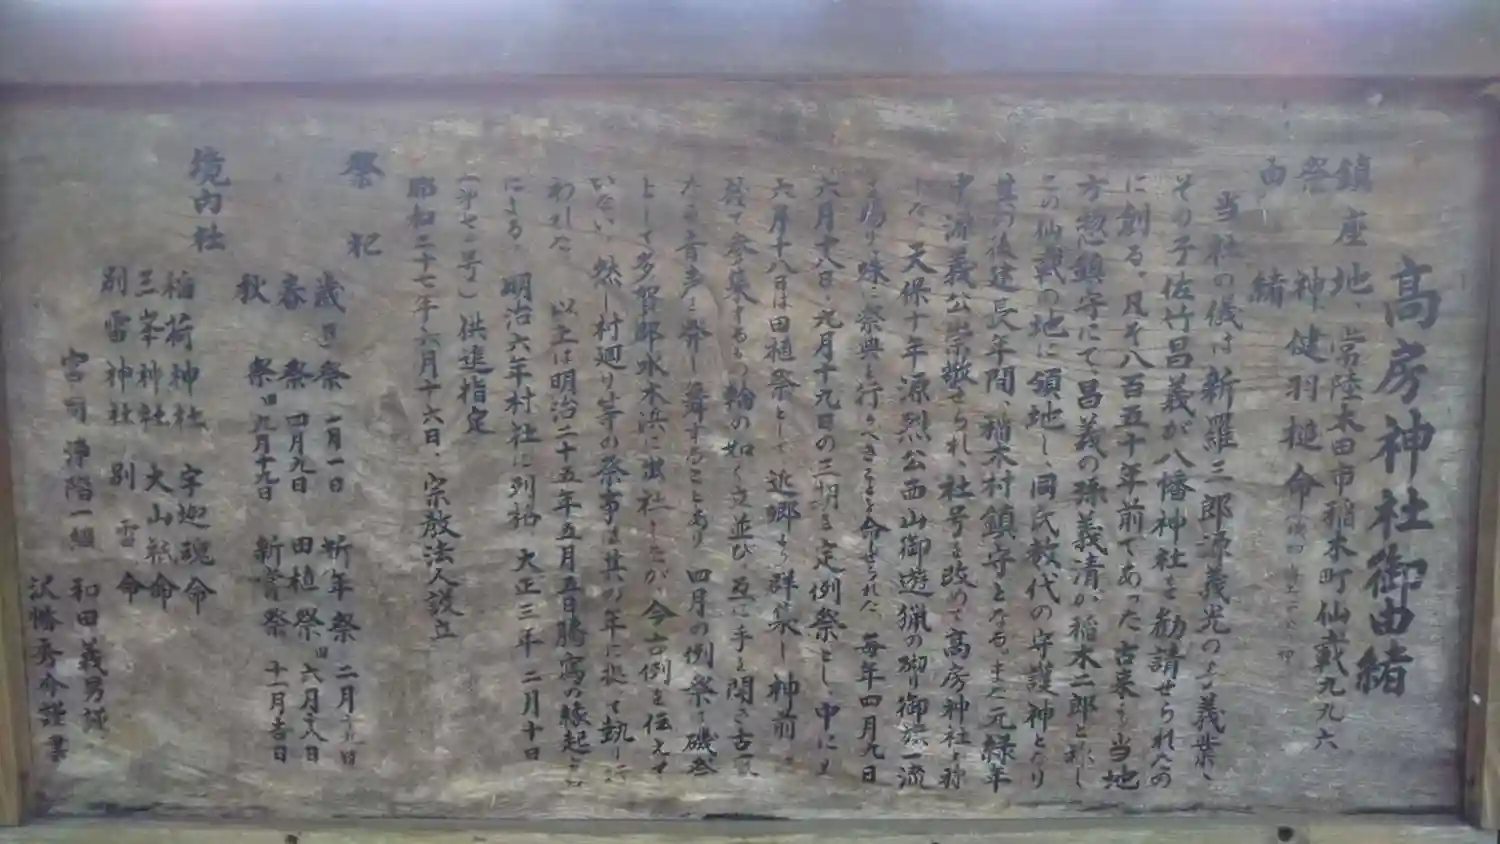 髙房神社御由緒
鎮座地 常陸太田市稲木町仙載九九六
祭神 健羽槌命
由緒
当社の儀は新羅三郎源義光の 義業
その子佐竹昌義が八幡神社を勧請せられたの
に創る。凡そ八百五十年前であった古来より当地
方惣鎮守にて昌義の孫義清が稲木二郎と称し
この仙載の地に領地し、同氏数代の守護神とたり
其の後建長年間、稲木村鎮守となる。また元禄年
中源義公崇敬せられ、社号を改めて髙房神社と称
した。天保十年源烈公西山御遊猟の砌り御旗一流
を賜り 祭典を行うべきことを命ぜられた。毎年四月九日
六月十八日・九月十九日の三期を定例祭とし、中にも
六月十八日は田植祭として近郷より群集し神前
に参集するもの輪の如く立並び互に手を
たる音声を発し舞することあり 四月の例祭に磯
として多賀郡水木浜に出社したが今古例を伝えて
いない。然し村廻り等の祭事は其の年に 執
われた。以上は明治二十五年五月五日謄写の縁起
による。明治六年村社に列格 大正三年二月十日
供進指定
昭和二十七年六月十六日、宗教法人設立
祭祀
歳旦祭 一月一日 祈年祭 二月 日
春祭 四月九日 田植祭 六月十八日
秋祭 九月十九日 新嘗祭 十一月吉日
境内社
稲荷神社 宇迦魂命
三峯神社 大山祇命
別雷神社 別雷命
宮司 浄階一級 和田義男
秀介謹書